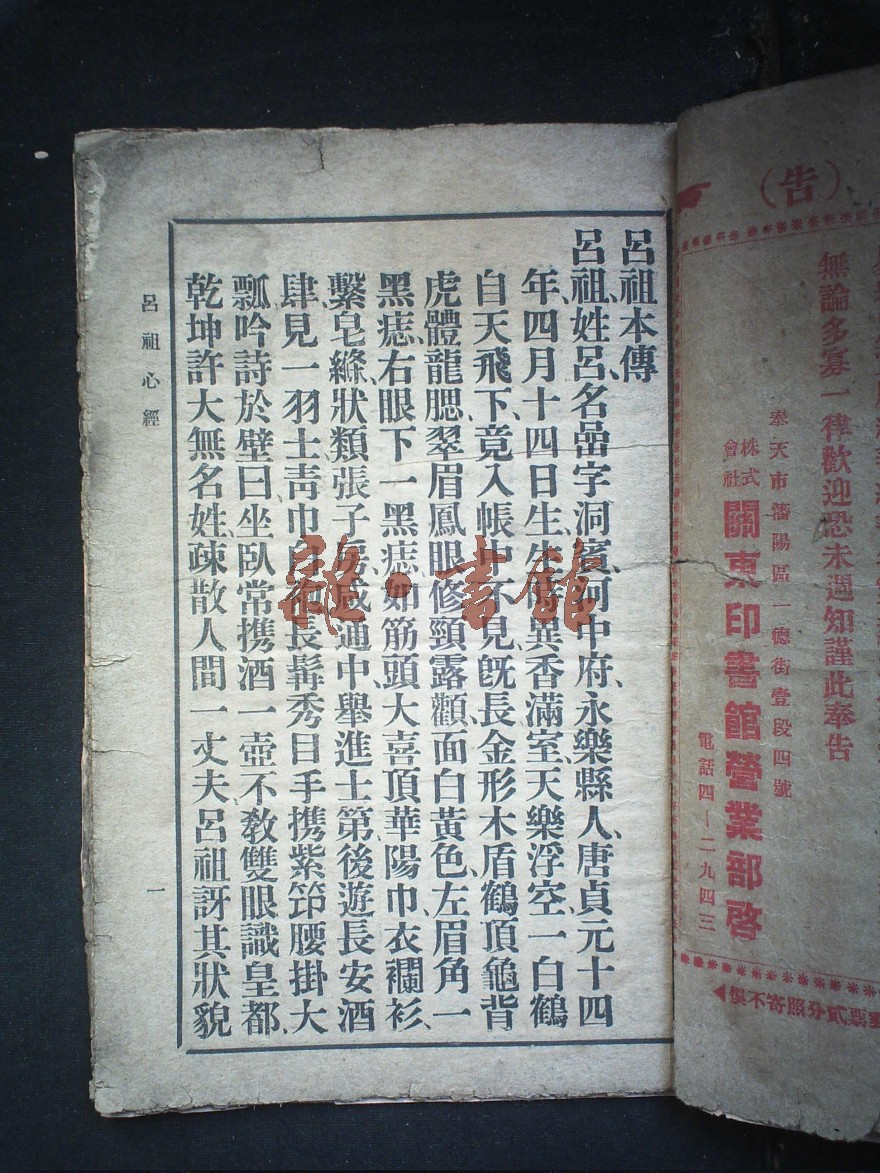 呂祖本傳
呂祖、姓呂名嵒字洞濱、河中府永樂縣人、唐貞元十四
年四月十四日生、生時異香滿室、天樂浮空、一白鶴
自天飛下、竟入帳中不見、旣長金形木盾鶴頂龜背
虎體龍腮、翠眉鳳眼修頸露顴、面白黃色、左眉角一
黑痣、右眼下一黑痣、如筋頭大、喜頂華陽巾、衣襴衫、
繫皂縧、狀類張子房、咸通中、舉進士第、後遊長安酒
肆、見一羽士靑巾白袍長髯秀目手携紫笻腰掛大
瓢、吟詩於壁曰、坐臥常携酒一壺、不敎雙眼識皇都、
乾坤許大無名姓、疎散人間一丈夫、呂祖訝其狀貌
呂祖心經
一
雜·書館
(告)
無論多寡一律歡迎恐未週知謹此奉告
奉天市瀋陽區一德街壹段四號
株式會社 關東印書館營業部啓
電話四—二九四三
票貳分照寄不悞